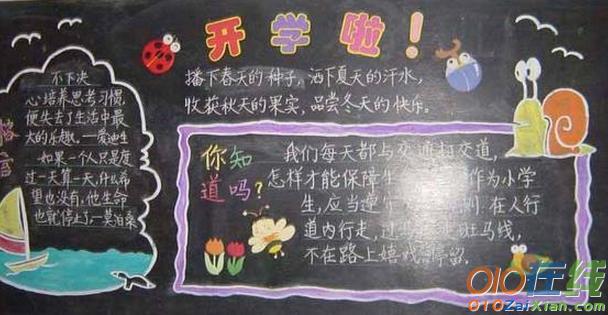 开学啦！
播下春天的种子，洒下夏天的汗水，
收获秋天的果实，品尝冬天的快乐。
不下决
心培养思考习惯，
便失去了生活中最
大的乐趣。—爱迪生
如果一个人只是度
过一天算一天，什么希
望也没有，他生命
也就停止了。—莫泊桑
你知
道吗？
我们每天都与交通打交道，
怎样才能保障生 作为小学
生，应当遵 则：在人行
道内行走，过 斑马线，
不在路上嬉戏 停留。
010在线
010ZaiXian.com